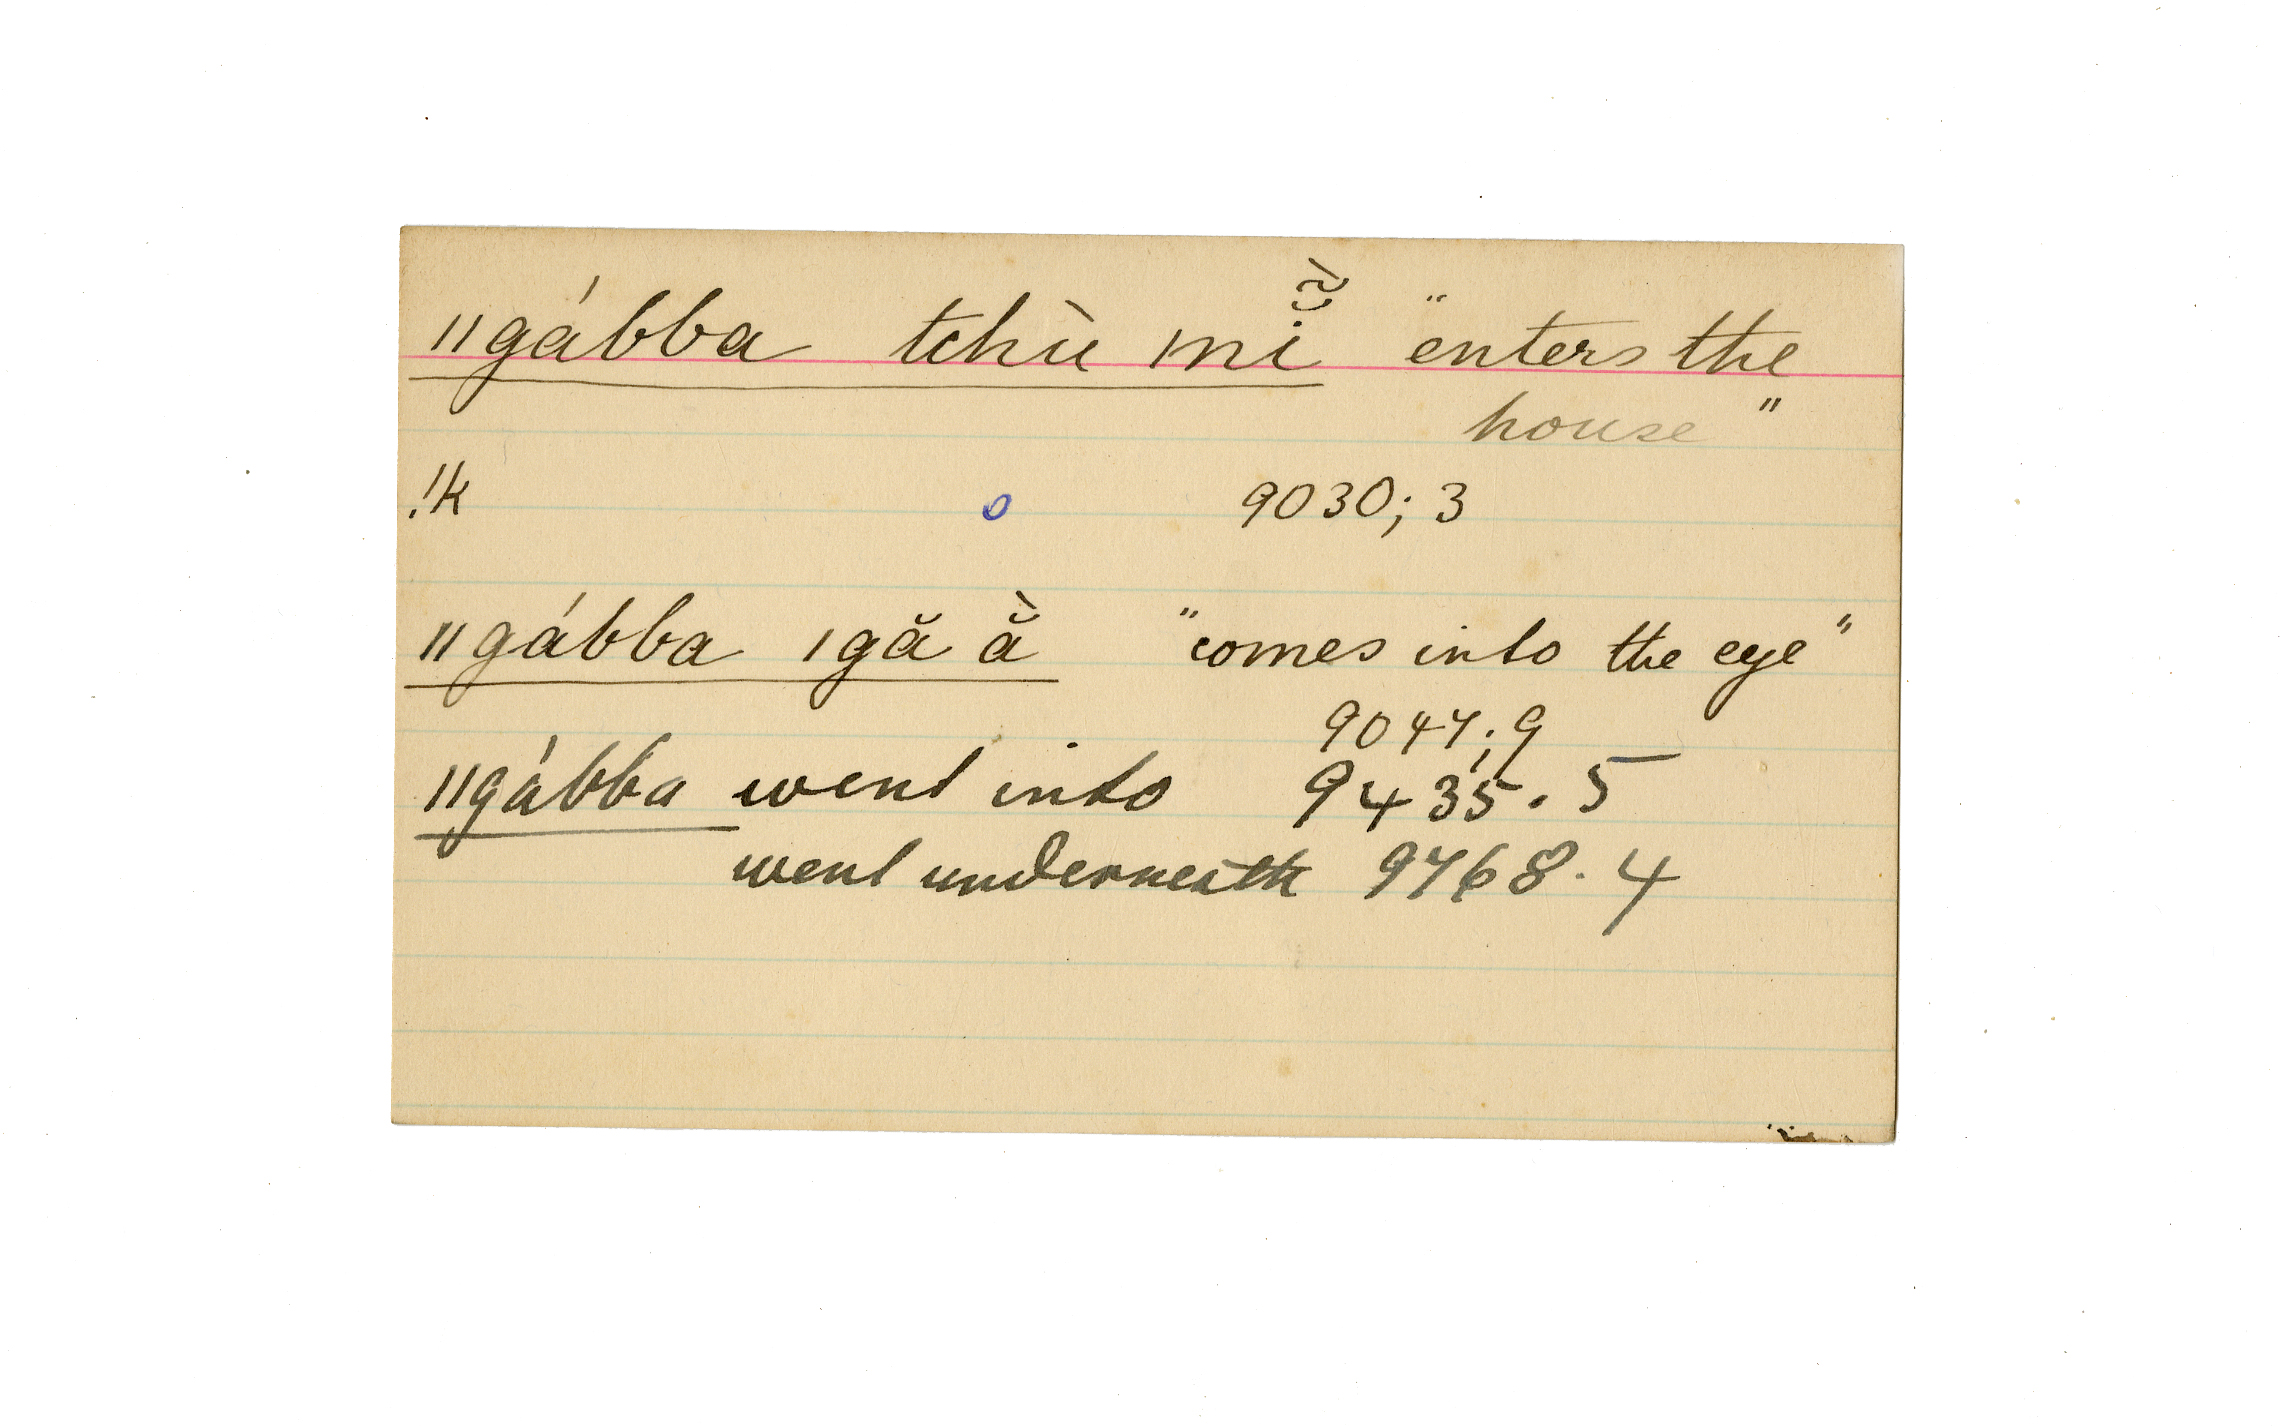 ǁgábba tchù mĭ̃̀ "enters the
house"
!k o 9030; 3
ǁgábba ǀgă ằ "comes into the eye"
9047; 9
ǁgábba went into 9435. 5
went underneath 9768. 4